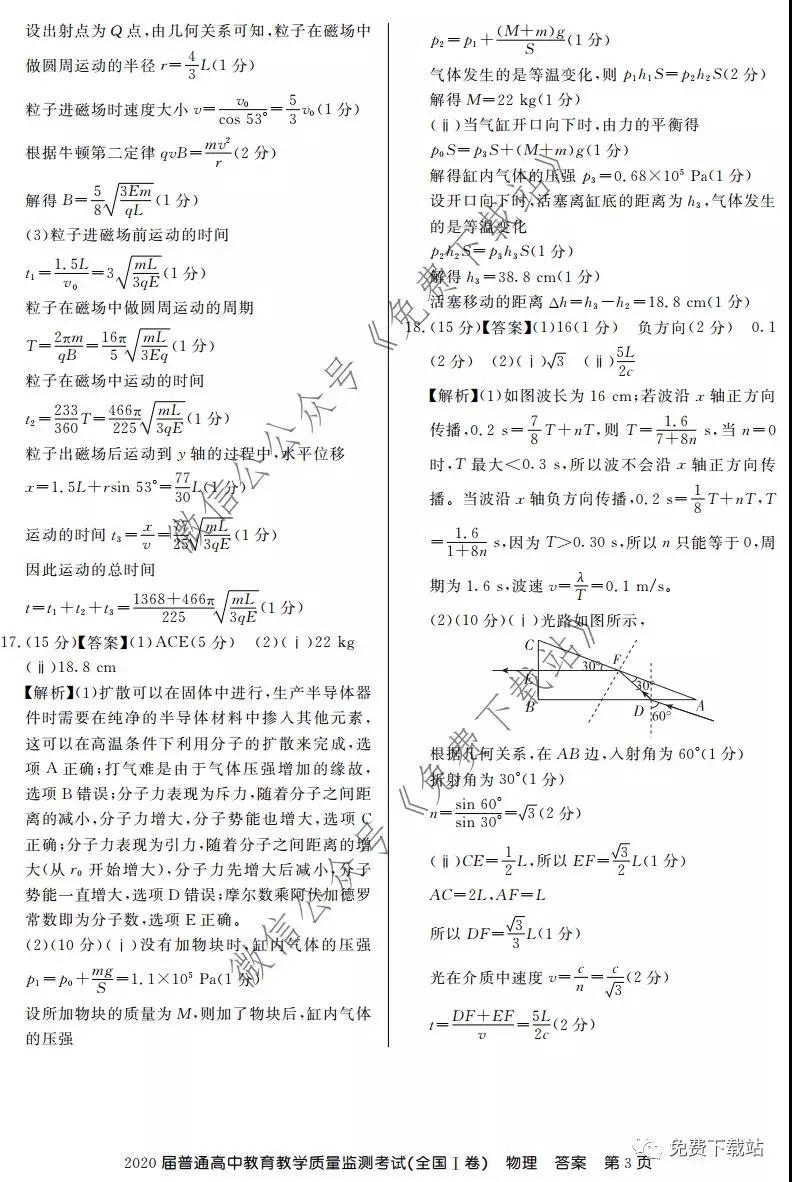 设出射点为 Q 点,由几何关系可知,粒子在磁场中
做圆周运动的半径 r=4/3L(1 分)
粒子进磁场时速度大小 v=v₀/cos 53°=5/3v₀(1 分)
根据牛顿第二定律 qvB=mv²/r(2 分)
解得 B=5/8√(3Em/qL)(1 分)
(3)粒子进磁场前运动的时间
t₁=1.5L/v₀=3√(mL/3qE)(1 分)
粒子在磁场中做圆周运动的周期
T=2πm/qB=16π/5√(mL/3Eq)(1 分)
粒子在磁场中运动的时间
t₂=233/360T=466π/225√(mL/3qE)(1 分)
粒子出磁场后运动到 y 轴的过程中,水平位移
x=1.5L+rsin 53°=77/30L(1 分)
运动的时间 t₃=x/v=/25√(mL/3qE)(1 分)
因此运动的总时间
t=t₁+t₂+t₃=1368+466π/225√(mL/3qE)(1 分)
17.(15 分)【答案】(1)ACE(5 分) (2)(ⅰ)22 kg
(ⅱ)18.8 cm
【解析】(1)扩散可以在固体中进行,生产半导体器
件时需要在纯净的半导体材料中掺入其他元素,
这可以在高温条件下利用分子的扩散来完成,选
项 A 正确;打气难是由于气体压强增加的缘故,
选项 B 错误;分子力表现为斥力,随着分子之间距
离的减小,分子力增大,分子势能也增大,选项 C
正确;分子力表现为引力,随着分子之间距离的增
大(从 r₀ 开始增大),分子力先增大后减小,分子
势能一直增大,选项 D 错误;摩尔数乘阿伏加德罗
常数即为分子数,选项 E 正确。
(2)(10 分)(ⅰ)没有加物块时,缸内气体的压强
p₁=p₀+mg/S=1.1×10⁵ Pa(1 分)
设所加物块的质量为 M,则加了物块后,缸内气体
的压强
p₂=p₁+(M+m)g/S(1 分)
气体发生的是等温变化,则 p₁h₁S=p₂h₂S(2 分)
解得 M=22 kg(1 分)
(ⅱ)当气缸开口向下时,由力的平衡得
p₀S=p₃S+(M+m)g(1 分)
解得缸内气体的压强 p₃=0.68×10⁵ Pa(1 分)
设开口向下时,活塞离缸底的距离为 h₃,气体发生
的是等温变化
p₂h₂S=p₃h₃S(1 分)
解得 h₃=38.8 cm(1 分)
活塞移动的距离 Δh=h₃−h₂=18.8 cm(1 分)
18.(15 分)【答案】(1)16(1 分) 负方向(2 分) 0.1
(2 分) (2)(ⅰ)√3 (ⅱ)5L/2c
【解析】(1)如图波长为 16 cm;若波沿 x 轴正方向
传播,0.2 s=7/8T+nT,则 T=1.6/7+8n s,当 n=0
时,T 最大<0.3 s,所以波不会沿 x 轴正方向传
播。当波沿 x 轴负方向传播,0.2 s=1/8T+nT,T
=1.6/1+8n s,因为 T>0.30 s,所以 n 只能等于 0,周
期为 1.6 s,波速 v=λ/T=0.1 m/s。
(2)(10 分)(ⅰ)光路如图所示,
C
30°
F
E
30°
B
D
60°
A
根据几何关系,在 AB 边,入射角为 60°(1 分)
折射角为 30°(1 分)
n=sin 60°/sin 30°=√3(2 分)
(ⅱ)CE=1/2L,所以 EF=√3/2L(1 分)
AC=2L,AF=L
所以 DF=√3/3L(1 分)
光在介质中速度 v=c/n=c/√3(2 分)
t=DF+EF/v=5L/2c(2 分)
2020 届普通高中教育教学质量监测考试(全国Ⅰ卷) 物理 答案 第 3 页
微信公众号《免费下载站》
微信公众号《免费下载站》
免费下载站